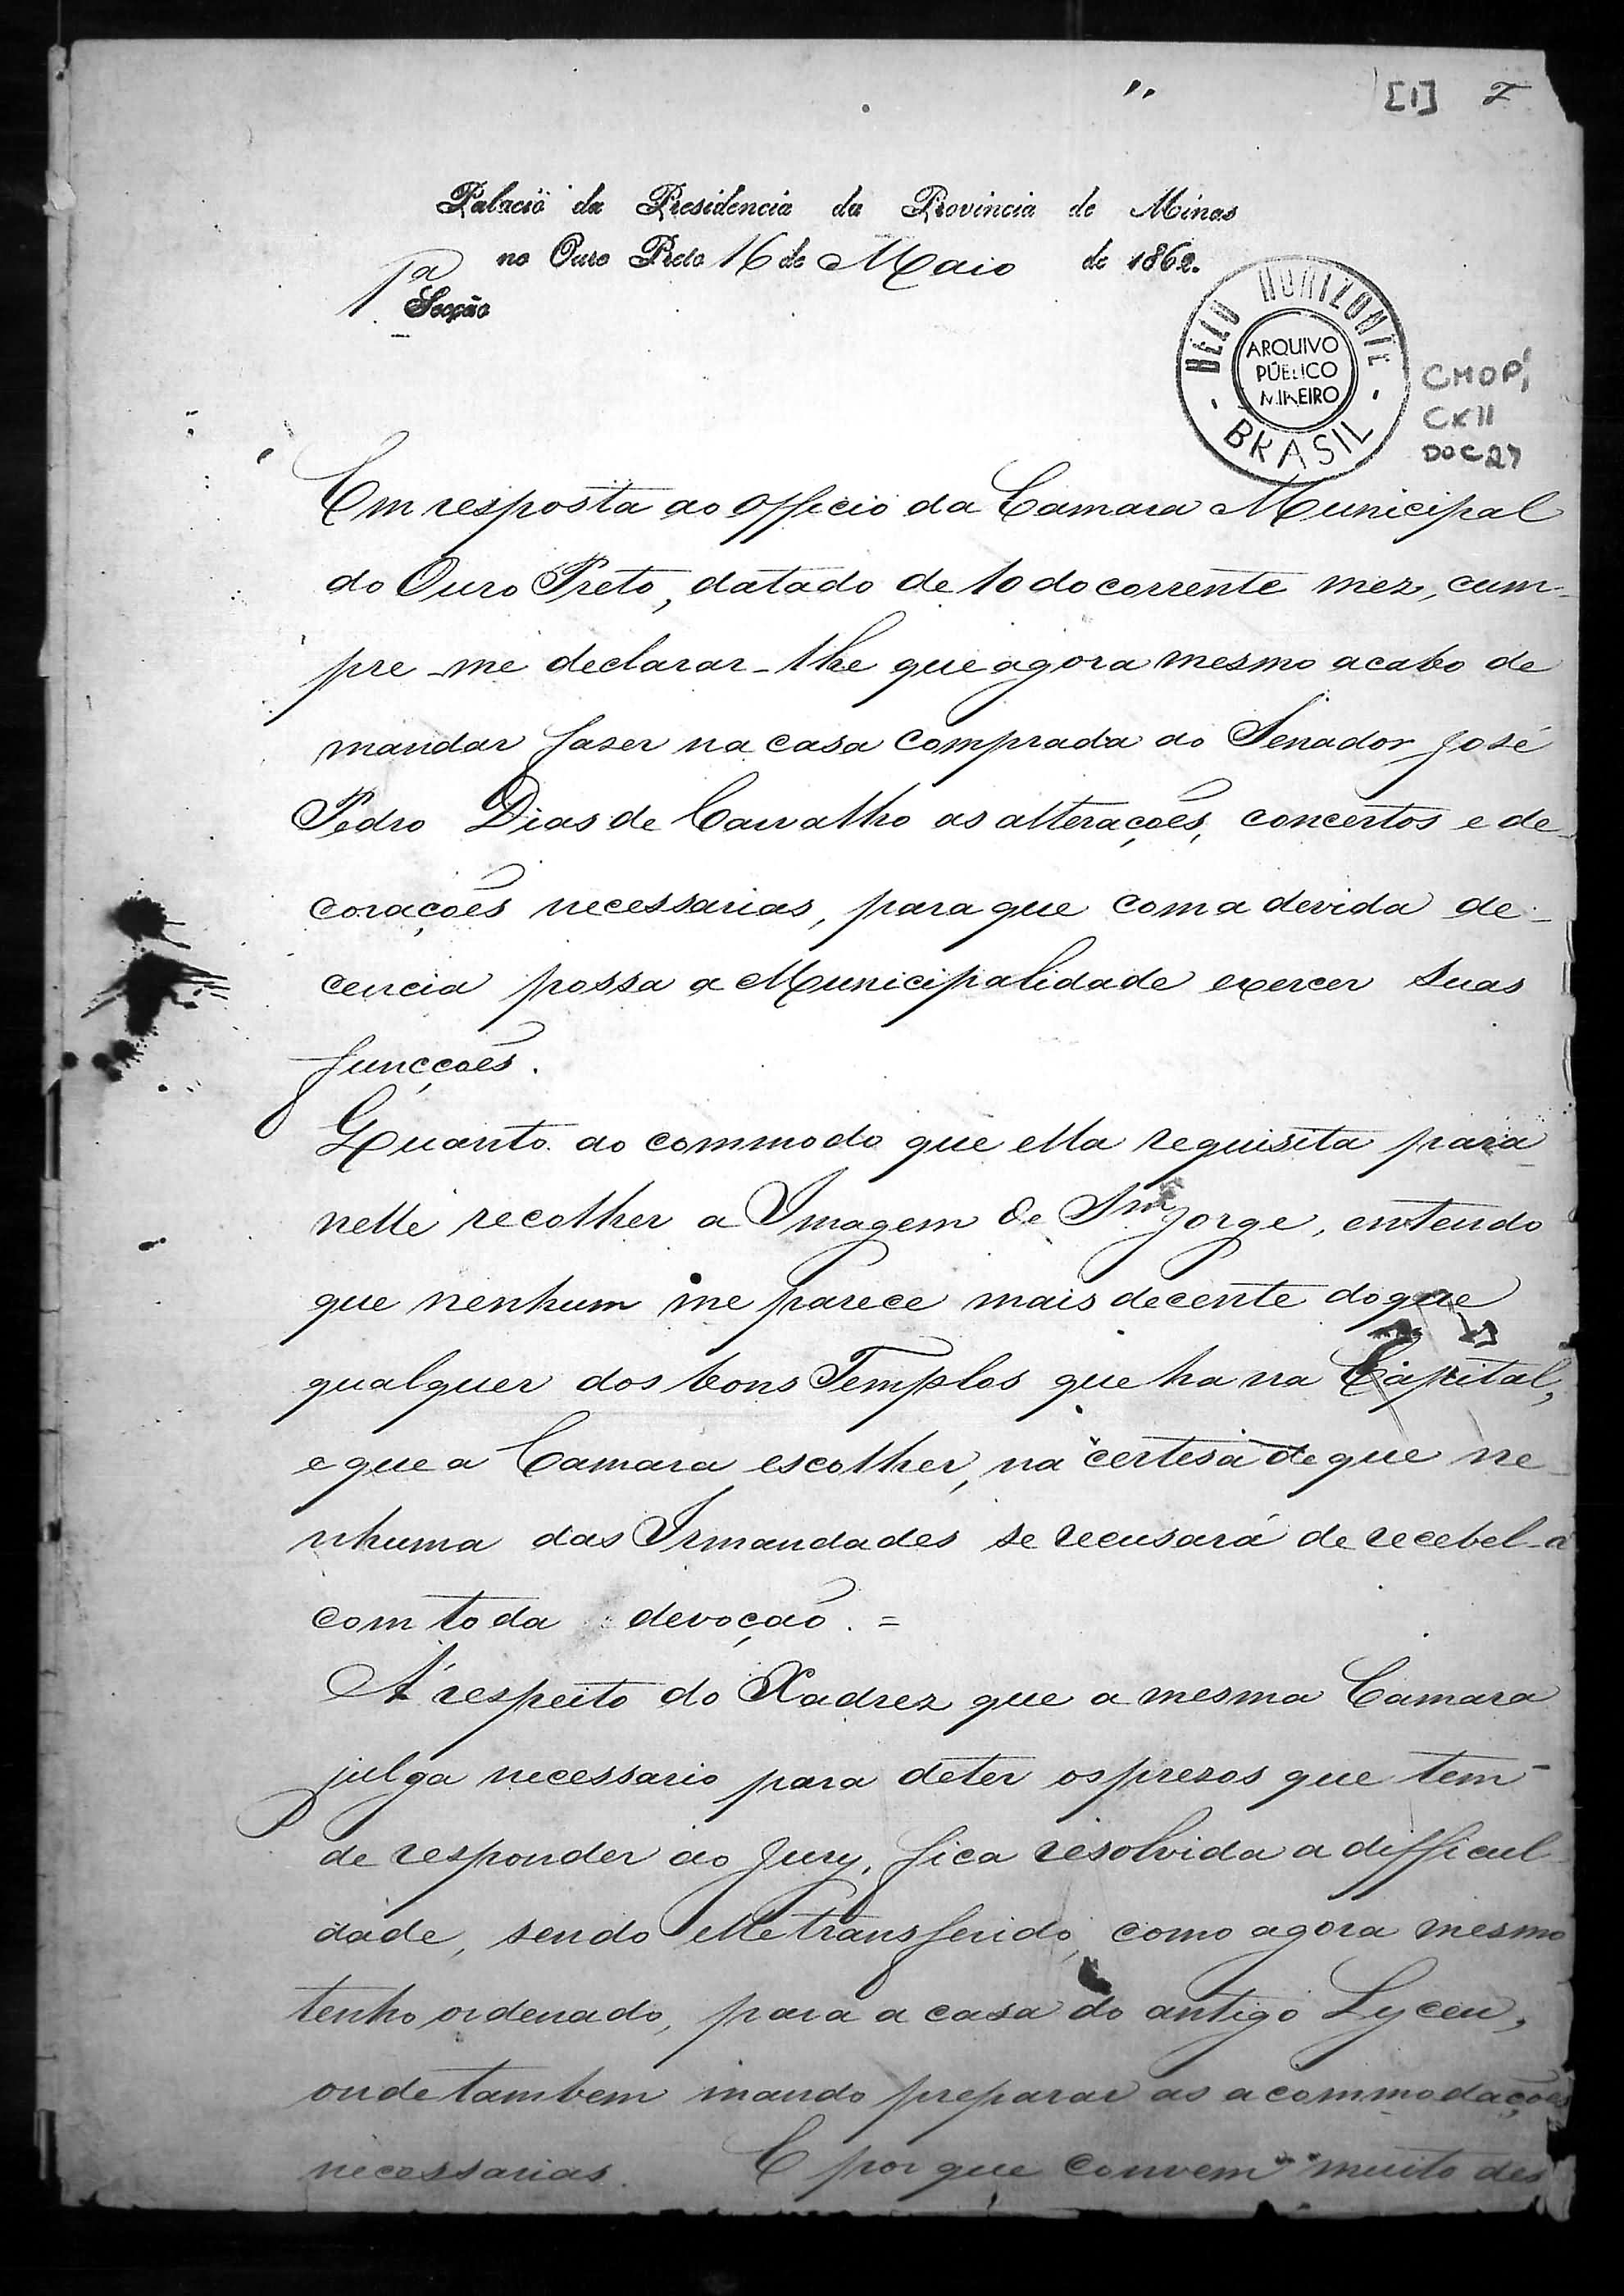 [1]
Palacio da Presidencia da Provincia de Minas
no Ouro Preto 16 de Maio de 1862.
1ª
Secção
BELO HORIZONTE
ARQUIVO
PÚBLICO
MINEIRO
BRASIL
CMOP,
CX 11
DOC 27
Em resposta ao Officio da Camara Municipal
do Ouro Preto, datado de 10 do corrente mez, cum-
pre-me declarar-lhe que agora mesmo acabo de
mandar faser na casa comprada ao Senador José
Pedro Dias de Carvalho as alterações, concertos e de-
corações necessarias, para que com a devida de-
cencia possa a Municipalidade exercer suas
funcções.
Quanto ao commodo que ella requisita para
nelle recolher a Imagem de Sm Jorge, entendo
que nenhum me parece mais decente do que
qualquer dos bons Templos que ha na Capital,
e que a Camara escolher, na certesa de que ne-
nhuma das Irmandades se recusará de recebel-a
com toda devoção. =
A' respeito do Xadrez que a mesma Camara
julga necessario para deter os prezos que tem
de responder ao Jury, fica resolvida a difficul-
dade, sendo elle transferido, como agora mesmo
tenho ordenado, para a casa do antigo Lyceu,
onde tambem mando preparar as acommodações
necessarias. E por que convem muito des